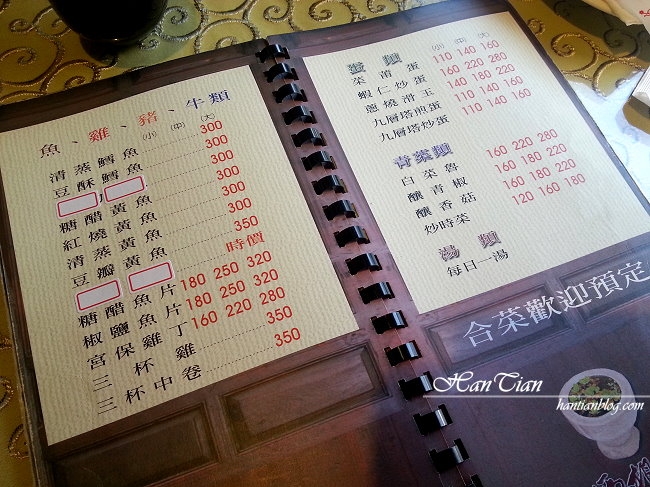 魚、雞、豬、牛類
(小) (中) (大)
清蒸鱈魚 300
豆酥鱈魚 300
300
糖醋黃魚 300
紅燒黃魚 300
清蒸黃魚 300
豆瓣黃魚 350
時價
糖醋魚片 180 250 320
椒鹽魚片 180 250 320
宮保雞丁 160 220 280
三杯雞 350
三杯中卷 350
蛋類 (小) (中) (大)
菜莆蛋 110 140 160
蝦仁炒蛋 160 220 280
蔥燒滑玉 140 180 220
九層塔煎蛋 110 140 160
九層塔炒蛋 110 140 160
青菜類
白菜魯 160 220 280
釀青椒 160 180 220
釀香菇 160 180 220
炒時菜 120 160 180
湯類
每日一湯
合菜歡迎預定
HanTian
hantianblog.com